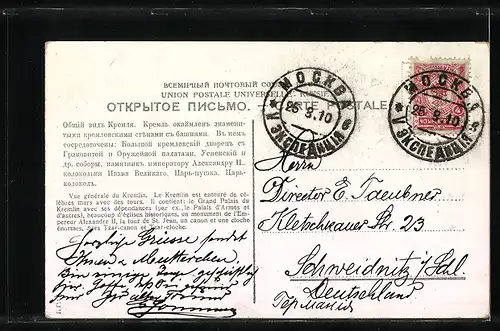 ВСЕМІРНЫЙ ПОЧТОВЫЙ СОЮЗ
UNION POSTALE UNIVERSELLE. RUSSIE.
ОТКРЫТОЕ ПИСЬМО. — CARTE POSTALE
МОСКВА
26.3.10
V ЭКСПЕДИЦІЯ
МОСКВА
26.3.10
V ЭКСПЕДИЦІЯ
Общій видъ Кремля. Кремль окаймленъ знамени-
тыми кремлевскими стѣнами съ башнами. Въ немъ
сосредоточены: Большой кремлевскій дворецъ съ
Грановитой и Оружейной палатами, Успенскій и
др. соборы, памятникъ императору Александру II,
колокольня Ивана Великаго, Царь-пушка, Царь-
колоколъ.
Vue générale du Kremlin. Le Kremlin est entouré de cé-
lèbres murs avec des tours. Il contient le Grand Palais du
Kremlin avec ses dépendances (par ex., le Palais d'Armes et
d'autres), beaucoup d'églises historiques, un monument de l'Em-
pereur Alexandre II, la tour de St. Jean, un canon et une cloche
énormes, dits Tzar-canon et Tzar-cloche.
Herzliche Grüsse sendet
Ihnen
Bin einige Tage geschäftlich
hier. Hoffe
Ihr alter Freund
Herrn
Director E. Taeubner
Kletschkauer Str. 23
Schweidnitz / Schl.
Deutschland
Германія